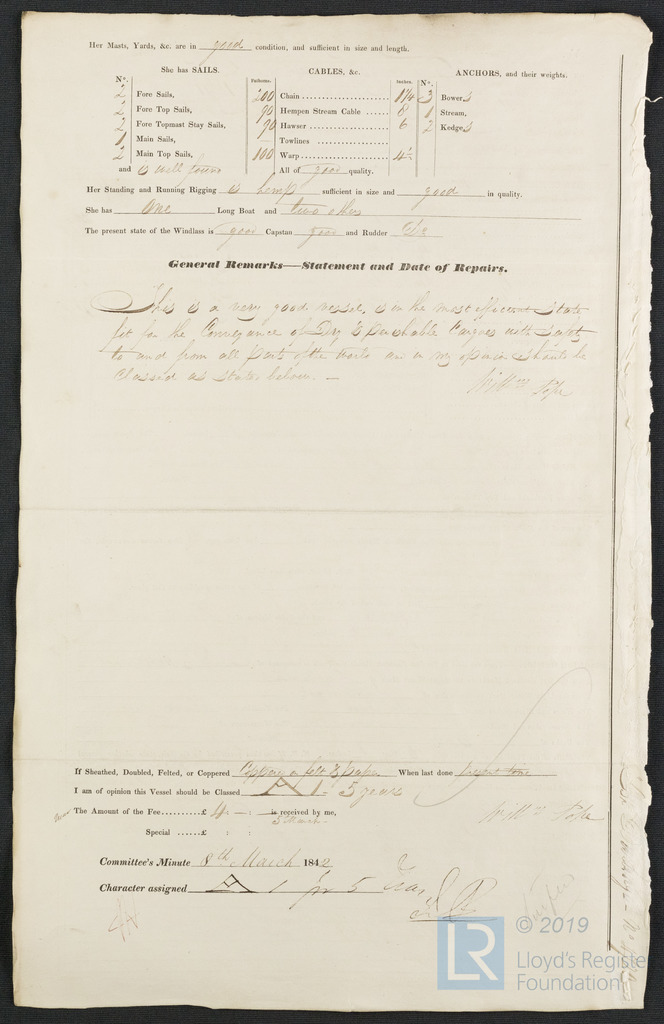 Her Masts, Yards, &c. are in good condition, and sufficient in size and length.
She has SAILS.
CABLES, &c.
ANCHORS, and their weights.
N°.
Fathoms.
Inches.
N°.
2 Fore Sails,
200 Chain 1 1/4
3 Bowers
2 Fore Top Sails,
90 Hempen Stream Cable 8
1 Stream,
2 Fore Topmast Stay Sails,
90 Hawser 6
2 Kedges
1 Main Sails,
Towlines
2 Main Top Sails,
100 Warp
and is well found
All of good quality.
Her Standing and Running Rigging is hemp sufficient in size and good in quality.
She has One Long Boat and two others
The present state of the Windlass is good Capstan good and Rudder Do
General Remarks—Statement and Date of Repairs.
This is a very good vessel, is in the most efficient State
fit for the Conveyance of Dry & perishable Cargoes with safety
to and from all parts of the World and in my opinion should be
Classed as stated below. —
Willm Pope
If Sheathed, Doubled, Felted, or Coppered Coppered on felt & paper When last done present time
I am of opinion this Vessel should be Classed A 1 - 5 years
The Amount of the Fee......£ 4 : — : — is received by me,
5 March
Special ......£ : :
Willm Pope
Committee's Minute 8th March 1842
Character assigned A 1 for 5 Years
© 2019
LR
Lloyd's Registe
Foundation